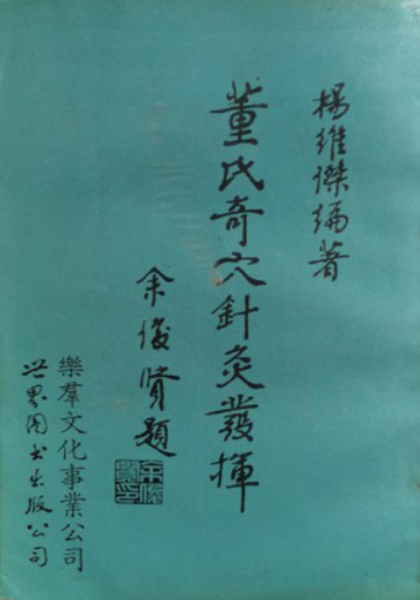 楊維傑編著
董氏奇穴針灸發揮
余俊賢題
樂羣文化事業公司
世界图书出版公司